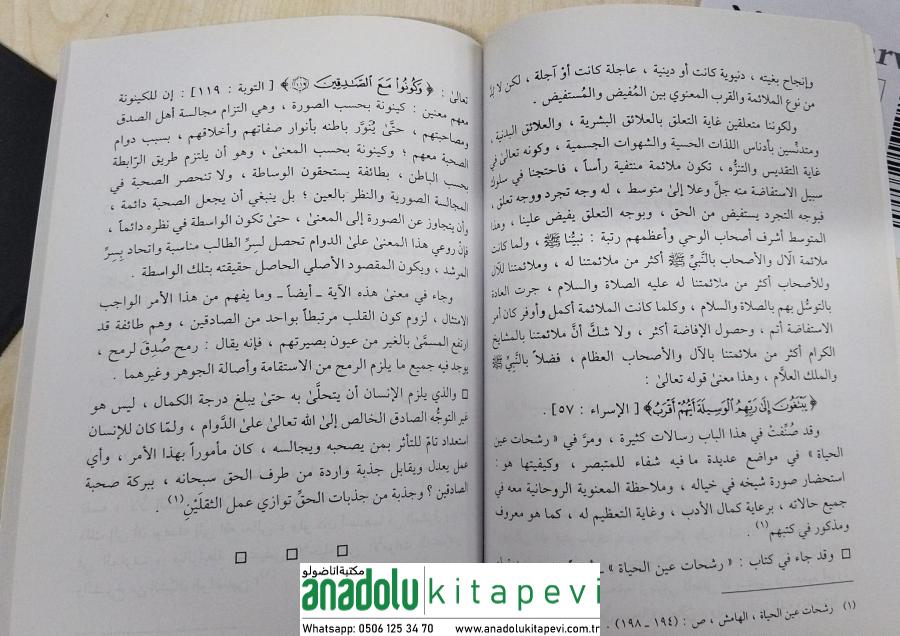 وإنجاح بغيته ، دنيوية كانت أو دينية ، عاجلة كانت أوْ آجلة ، لكن لا
من نوع الملائمة والقرب المعنوي بين المُفيض والمُستفيض .
ولكوننا متعلقين غاية التعلق بالعلائق البشرية ، والعلائق البدنية ،
ومتدنِّسين بأدناس اللذات الحسية والشهوات الجسمية ، وكونه تعالىٰ في
غاية التقديس والتنزُّه ، تكون ملائمة منتفية رأساً ، فاحتجنا في سلوك
سبيل الاستفاضة منه جلَّ وعلا إلىٰ متوسط ، له وجه تجرد ووجه تعلق ،
فبوجه التجرد يستفيض من الحق ، وبوجه التعلق يفيض علينا ، وهذا
المتوسط أشرف أصحاب الوحي وأعظمهم رتبة : نبيُّنا ﷺ ، ولما كانت
ملائمة الآل والأصحاب بالنَّبيِّ ﷺ أكثر من ملائمتنا له ، وملائمتنا للآل
وللأصحاب أكثر من ملائمتنا له عليه الصلاة والسلام ، جرت العادة
بالتوسُّل بهم بالصلاة والسلام ، وكلما كانت الملائمة أكمل وأوفر كان أمر
الاستفاضة أتم ، وحصول الإفاضة أكثر ، ولا شكَّ أنَّ ملائمتنا بالمشايخ
الكرام أكثر من ملائمتنا بالآل والأصحاب العظام ، فضلاً بالنَّبيِّ ﷺ
والملك العلَّام ، وهذا معنىٰ قوله تعالىٰ :
﴿ يَبْتَغُونَ إِلَىٰ رَبِّهِمُ ٱلْوَسِيلَةَ أَيُّهُمْ أَقْرَبُ ﴾ [ الإسراء : ٥٧] .
وقد صُنِّفتْ في هذا الباب رسالات كثيرة ، ومرَّ في « رشحات عين
الحياة » في مواضع عديدة ما فيه شفاء للمتبصر ، وكيفيتها هو :
استحضار صورة شيخه في خياله ، وملاحظة المعنوية الروحانية معه في
جميع حالاته ، برعاية كمال الأدب ، وغاية التعظيم له ، كما هو معروف
ومذكور في كتبهم(١) .
□ وقد جاء في كتاب : « رشحات عين الحياة » ـ
(١) رشحات عين الحياة ، الهامش ، ص : (١٩٤ ـ ١٩٨) .
تعالىٰ : ﴿ وَكُونُوا۟ مَعَ ٱلصَّٰدِقِينَ ﴿١١٩﴾ ﴾ [ التوبة : ١١٩] : إن للكينونة
معهم معنين : كينونة بحسب الصورة ، وهي التزام مجالسة أهل الصدق
ومصاحبتهم ، حتَّىٰ يُنَوَّر باطنه بأنوار صفاتهم وأخلاقهم ، بسبب دوام
الصحبة معهم ؛ وكينونة بحسب المعنىٰ ، وهو أن يلتزم طريق الرّابطة
بحسب الباطن ، بطائفة يستحقون الوساطة ، ولا تنحصر الصحبة في
المجالسة الصورية والنظر بالعين ؛ بل ينبغي أن يجعل الصحبة دائمة ،
وأن يتجاوز عن الصورة إلى المعنىٰ ، حتىٰ تكون الواسطة في نظره دائماً ،
فإنْ روعي هذا المعنىٰ علىٰ الدوام تحصل لسِرِّ الطالب مناسبة واتحاد بِسِرِّ
المرشد ، ويكون المقصود الأصلي الحاصل حقيقته بتلك الواسطة .
وجاء في معنىٰ هذه الآية ـ أيضاً ـ وما يفهم من هذا الأمر الواجب
الامتثال ، لزوم كون القلب مرتبطاً بواحد من الصادقين ، وهم طائفة قد
ارتفع المسمَّىٰ بالغير من عيون بصيرتهم ، فإنه يقال : رمح صُدِقَ لرمح ،
يوجد فيه جميع ما يلزم الرمح من الاستقامة وأصالة الجوهر وغيرهما .
□ والذي يلزم الإنسان أن يتحلَّىٰ به حتىٰ يبلغ درجة الكمال ، ليس هو
غير التوجُّه الصادق الخالص إلى الله تعالىٰ علىٰ الدَّوام ، ولمّا كان للإنسان
استعداد تامٌ للتأثر بمن يصحبه ويجالسه ، كان مأموراً بهذا الأمر ، وأي
عمل يعدل ويقابل جذبة واردة من طرف الحق سبحانه ، ببركة صحبة
الصادقين ؟ وجذبة من جذبات الحقِّ توازي عمل الثقلَيْنِ(١) .
مكتبة اناضولو
anadolu kitapevi
Whatsapp: 0506 125 34 70 www.anadolukitapevi.com.tr